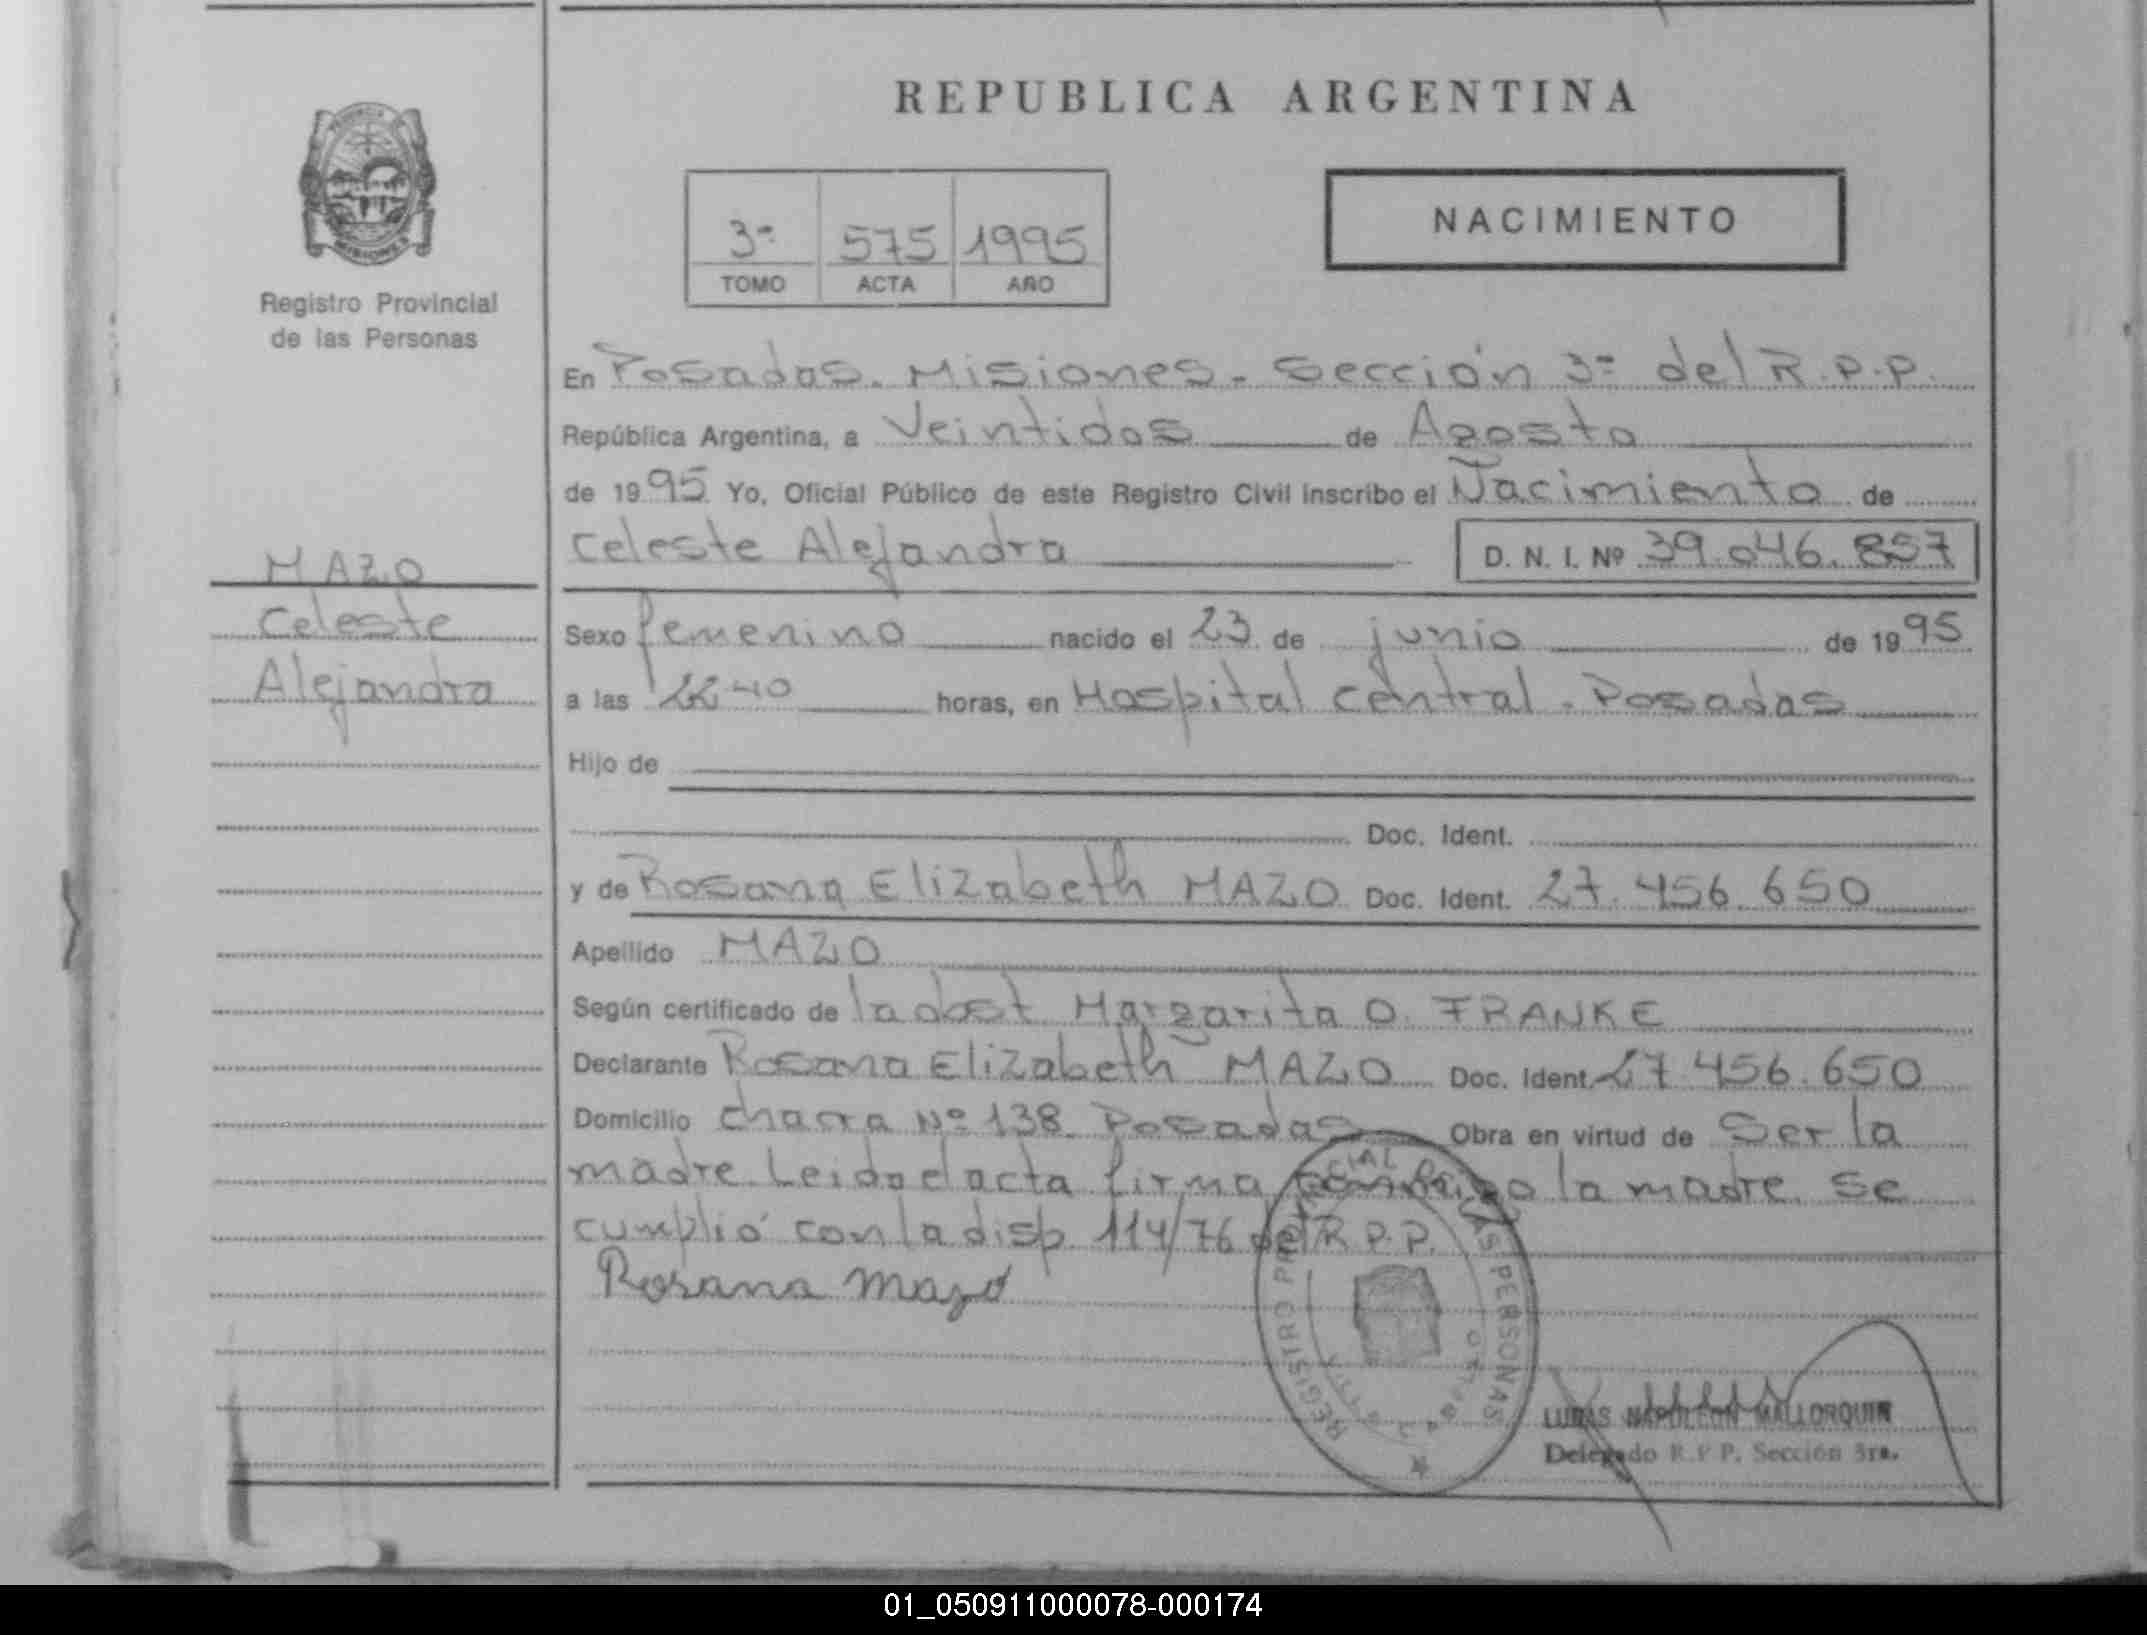 REPUBLICA ARGENTINA
3ª 575 1995
TOMO ACTA AÑO
NACIMIENTO
MISIONES
Registro Provincial
de las Personas
MAZO
Celeste
Alejandra
En Posadas. Misiones - Sección 3ª del R.P.P.
República Argentina, a Veintidos de Agosto
de 1995 Yo, Oficial Público de este Registro Civil inscribo el Nacimiento de
Celeste Alejandra D. N. I. Nº 39.046.857
Sexo femenino nacido el 23 de junio de 1995
a las 22-40 horas, en Hospital central - Posadas
Hijo de
Doc. Ident.
y de Rosana Elizabeth MAZO Doc. Ident. 27.456.650
Apellido MAZO
Según certificado de la obst Margarita O. FRANKE
Declarante Rosana Elizabeth MAZO Doc. Ident. 27 456.650
Domicilio chacra Nº 138 Posadas Obra en virtud de Ser la
madre. Leido el acta firma conmigo la madre. Se
cumplió con la disp. 114/76 del R.P.P.
Rosana Mazo
REGISTRO PROVINCIAL DE LAS PERSONAS
LUCAS NAPOLEON MALLORQUIN
Delegado R.P.P. Sección 3ra.
01_050911000078-000174